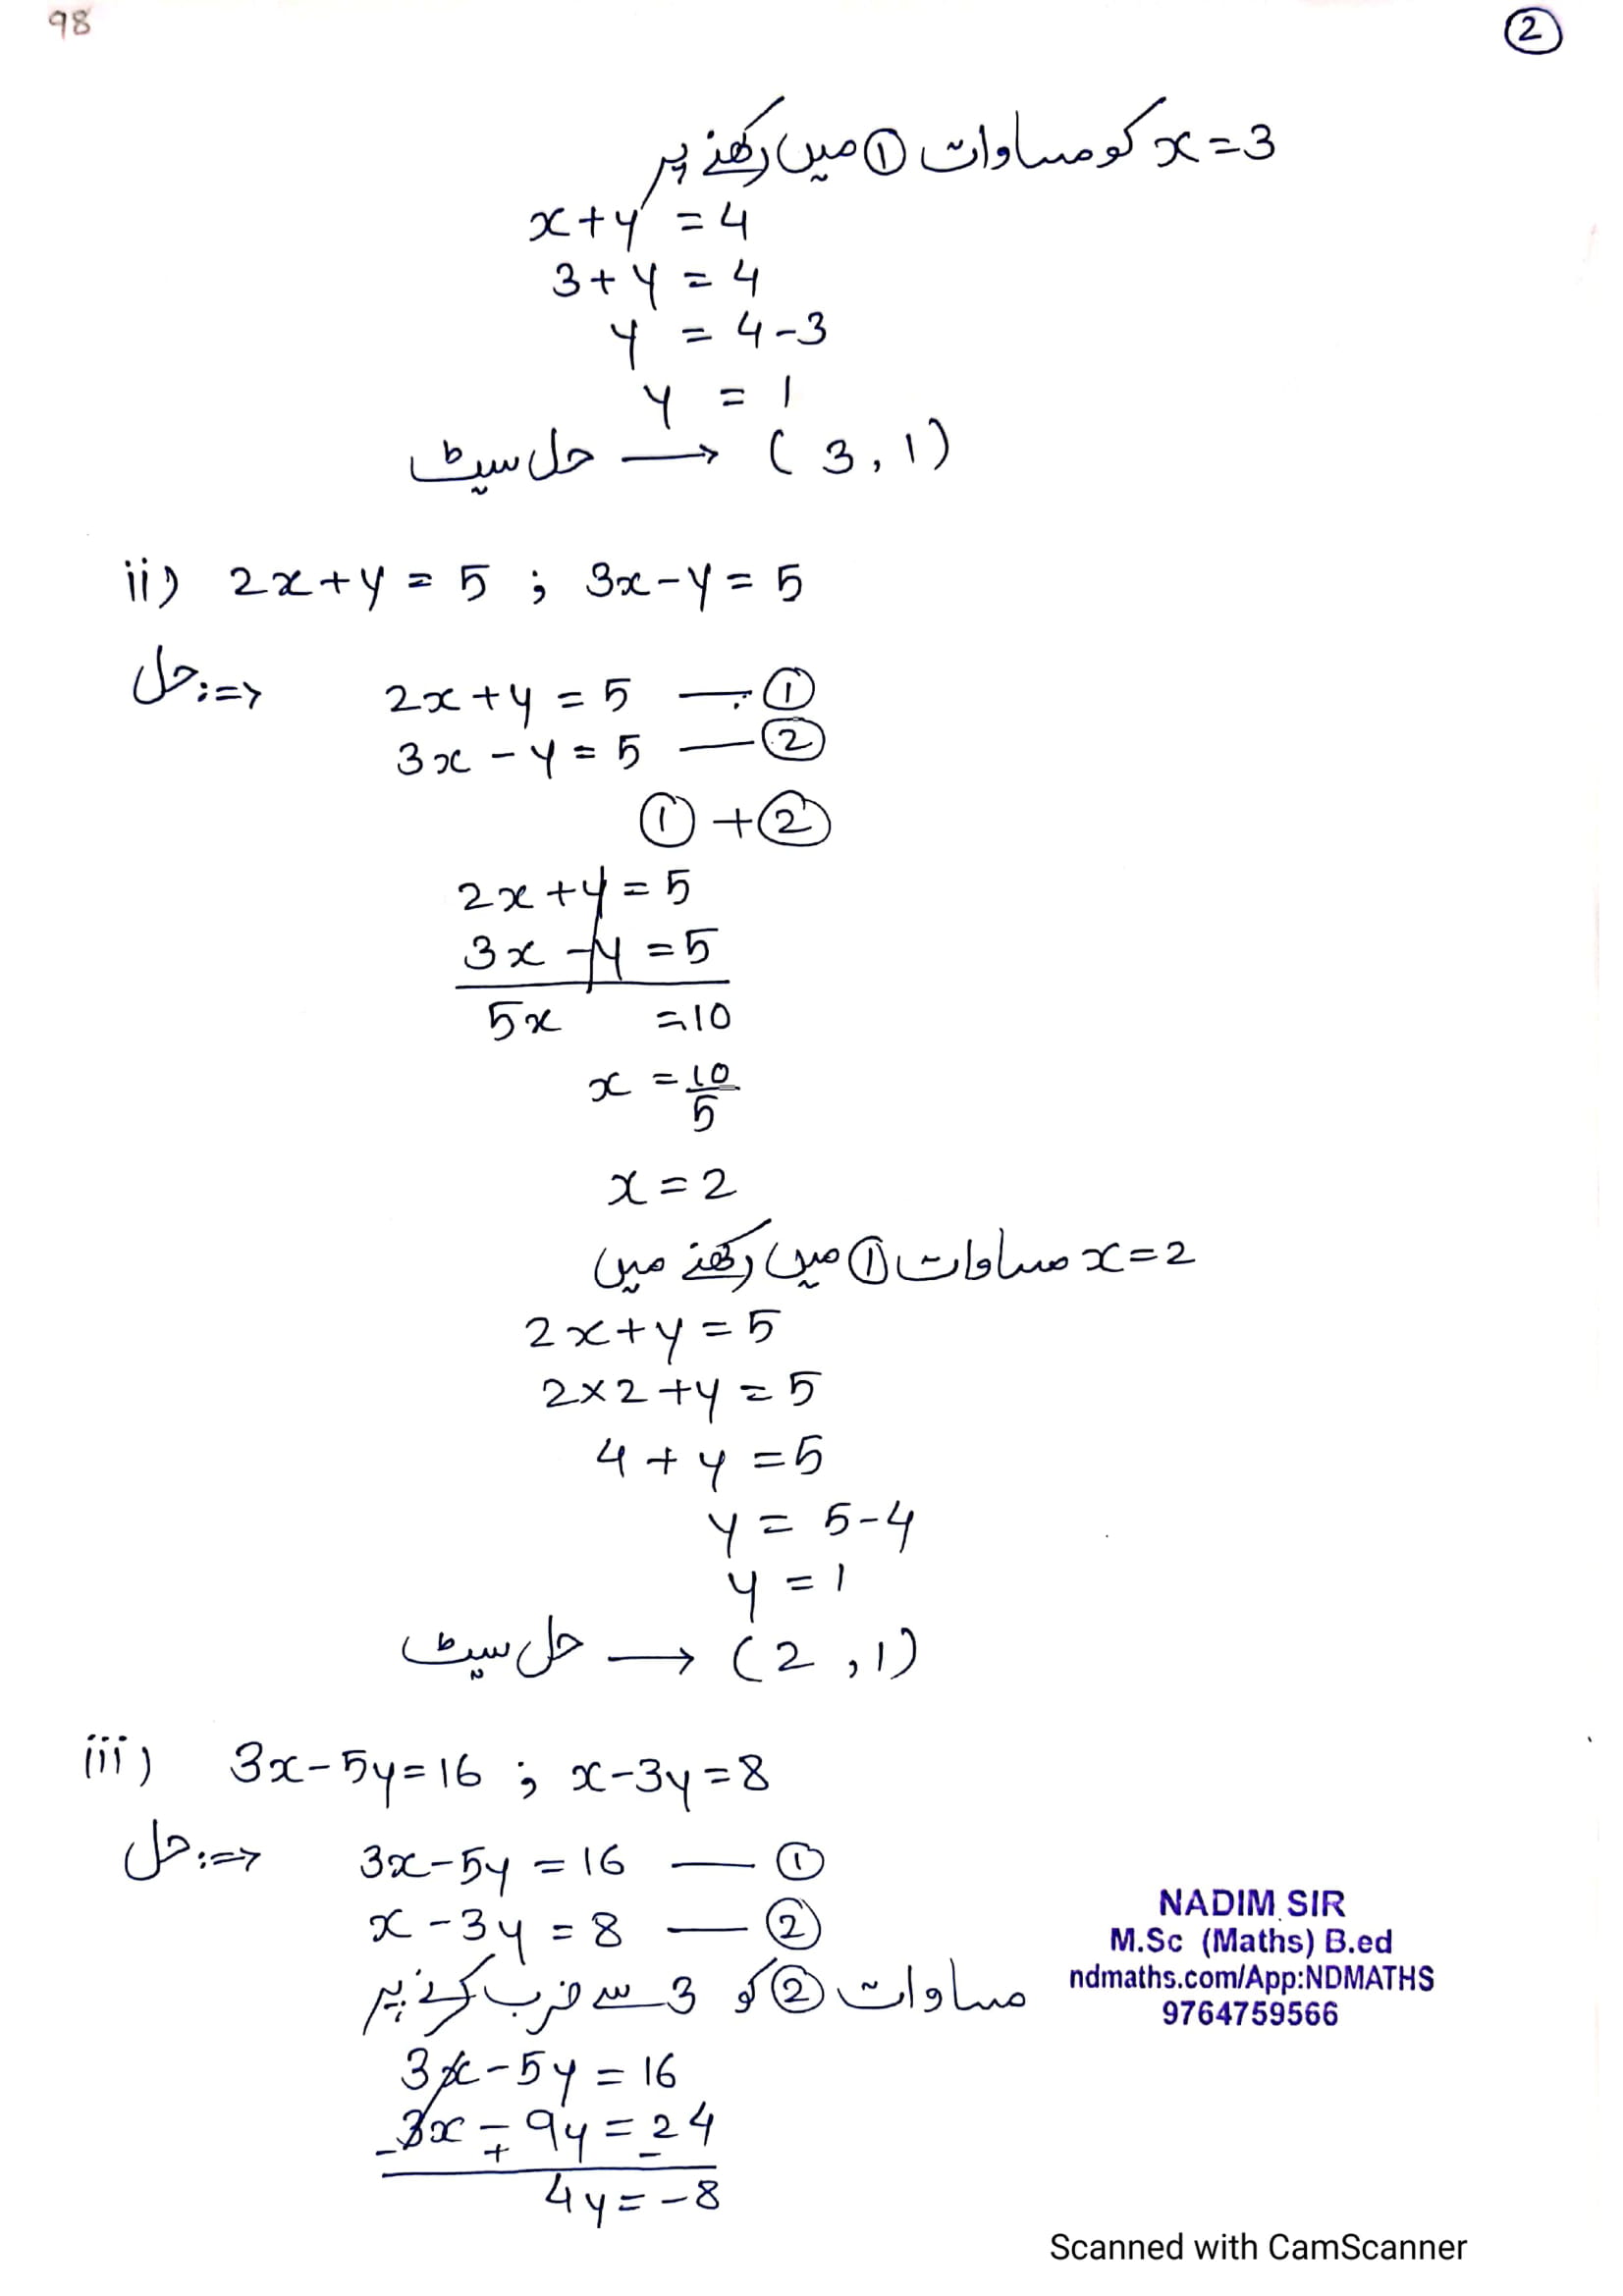 98
2
x=3 کو مساوات ① میں رکھنے پر
x+y = 4
3+y = 4
y = 4-3
y = 1
حل سیٹ → (3,1)
ii) 2x+y = 5 ; 3x-y = 5
حل:=> 2x+y = 5 — ①
3x-y = 5 — ②
① + ②
2x+y = 5
3x-y = 5
5x = 10
x = 10/5
x = 2
x=2 مساوات ① میں رکھنے میں
2x+y = 5
2×2+y = 5
4+y = 5
y = 5-4
y = 1
حل سیٹ → (2,1)
iii) 3x-5y=16 ; x-3y=8
حل:=> 3x-5y = 16 — ①
x-3y = 8 — ②
مساوات ② کو 3 سے ضرب کرنے پر
3x-5y = 16
3x-9y = 24
- + -
4y = -8
NADIM SIR
M.Sc (Maths) B.ed
ndmaths.com/App:NDMATHS
9764759566
Scanned with CamScanner